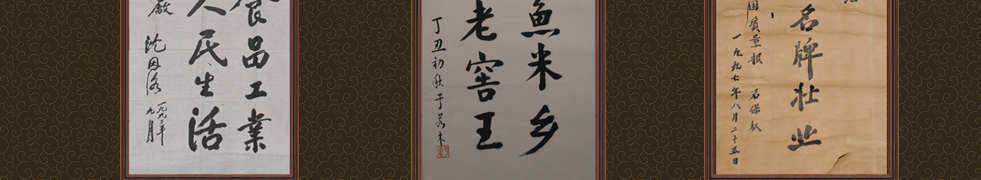 食品工業
人民生活
廠
沈因洛
一九九二年
九月
魚米乡
老窖王
丁丑初秋于若木
名牌壮业
国质量报
一九九七年八月二十五日